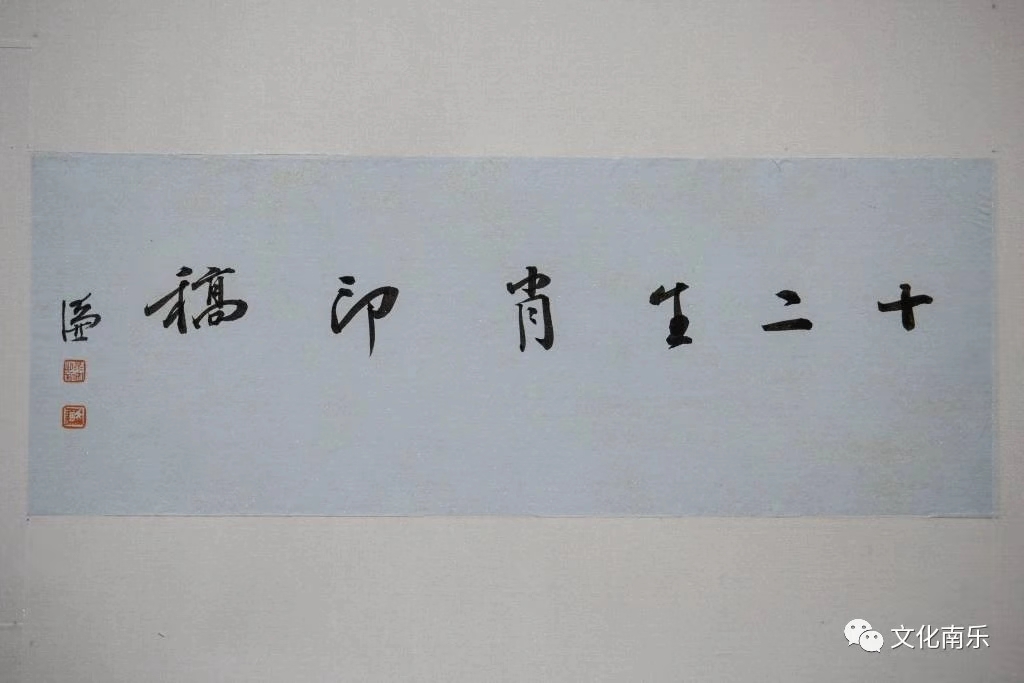 十二生肖印稿
文化南乐